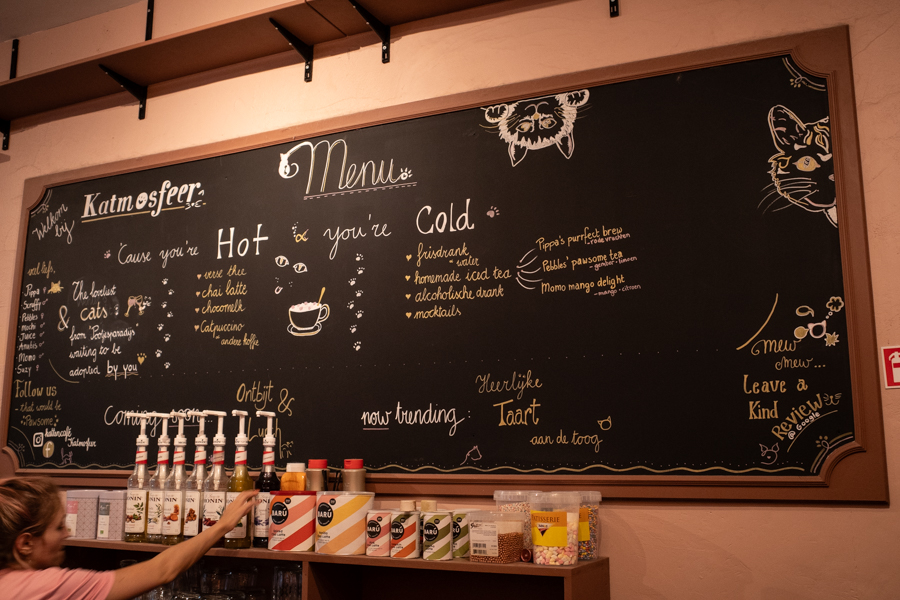 Welkom
bij
Katmosfeer
Menu
'Cause you're Hot
you're Cold
verse thee
chai latte
chocomelk
Catpuccino
en andere koffie
frisdrank
en water
homemade iced tea
alcoholische drank
mocktails
Pippa's purrfect brew
- rode vruchten
Pebbles' pawsome tea
- gember-limoen
Momo mango delight
- mango-citroen
Pippa
Scruffy
Pebbles
mochi
Juice
Anubis
Momo
Suzy
The loveliest
& cats
from 'Pootjesparadijs
waiting to be
adopted by you
Follow us
that would be
"Pawsome"
kattencafé
Katmosfeer
Coming soon
Ontbijt &
now trending:
Heerlijke
Taart
aan de toog
mew
mew...
Leave a
Kind
Review
@ Google
MONIN
MONIN
MONIN
MONIN
MONIN
BARÚ
BARÚ
BARÚ
BARÚ
BARÚ
PATISSERIE